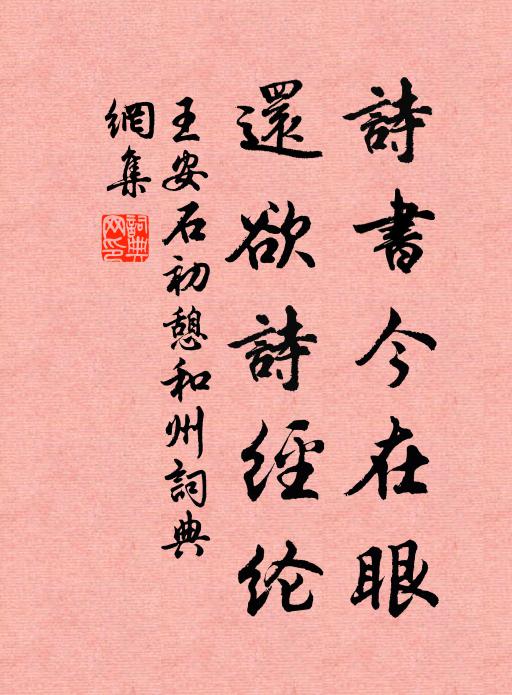 詩書今在眼
還欲詩經纶
王安石初憩和州詞典
網集
詞典网印